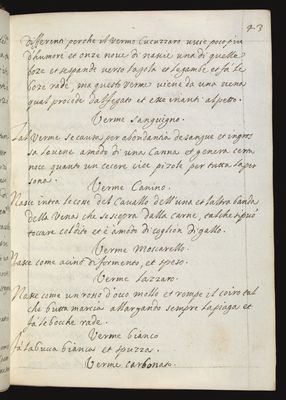 43
differenti perche il Vermo Cucuzzaro uscie poco più
d'humore et onze noue di nascie una di quelle
boze et si spande verso la gola et le gambe et fà le
boze rade, ma questo Verme viene da una uena
qual procede dal fegato et esse inanti al petto.
Verme sanguigno.
Tal Verme se causa per abondanza de sangue et ingros
sa la uene à modo di una Canna et genera certe
noce quanto un cecere cioè pizole per tutta la per
sona.
Verme Canino.
Nasce intra le cosse del Cavallo dell'una et l'altra banda
della Vena che se scopra dalla carne, talche si può
toccare col dito et è à modo di coglion di gallo.
Verme Moscarello.
Nasce come acino di formento, et speso.
Verme lazzaro.
Nasce come un rosso d'ouo molle et rompe il coiro tal
che butta marcia allargando sempre la piaga et
fà le bocche rade.
Verme bianco
fà la bucca bianca et spuzza.
Verme carbonaro.